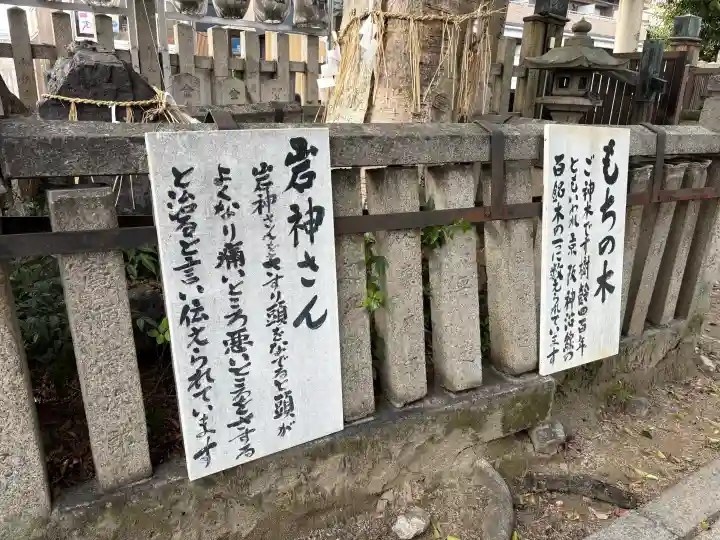 岩神さん
岩神さんをさすり頭をなでると頭が
よくなり痛いところ悪いところをさする
と治ると言い伝えられています
もちの木
ご神木です樹齢四百年
ともいわれ京阪神沿線の
百銘木の一に数えられています